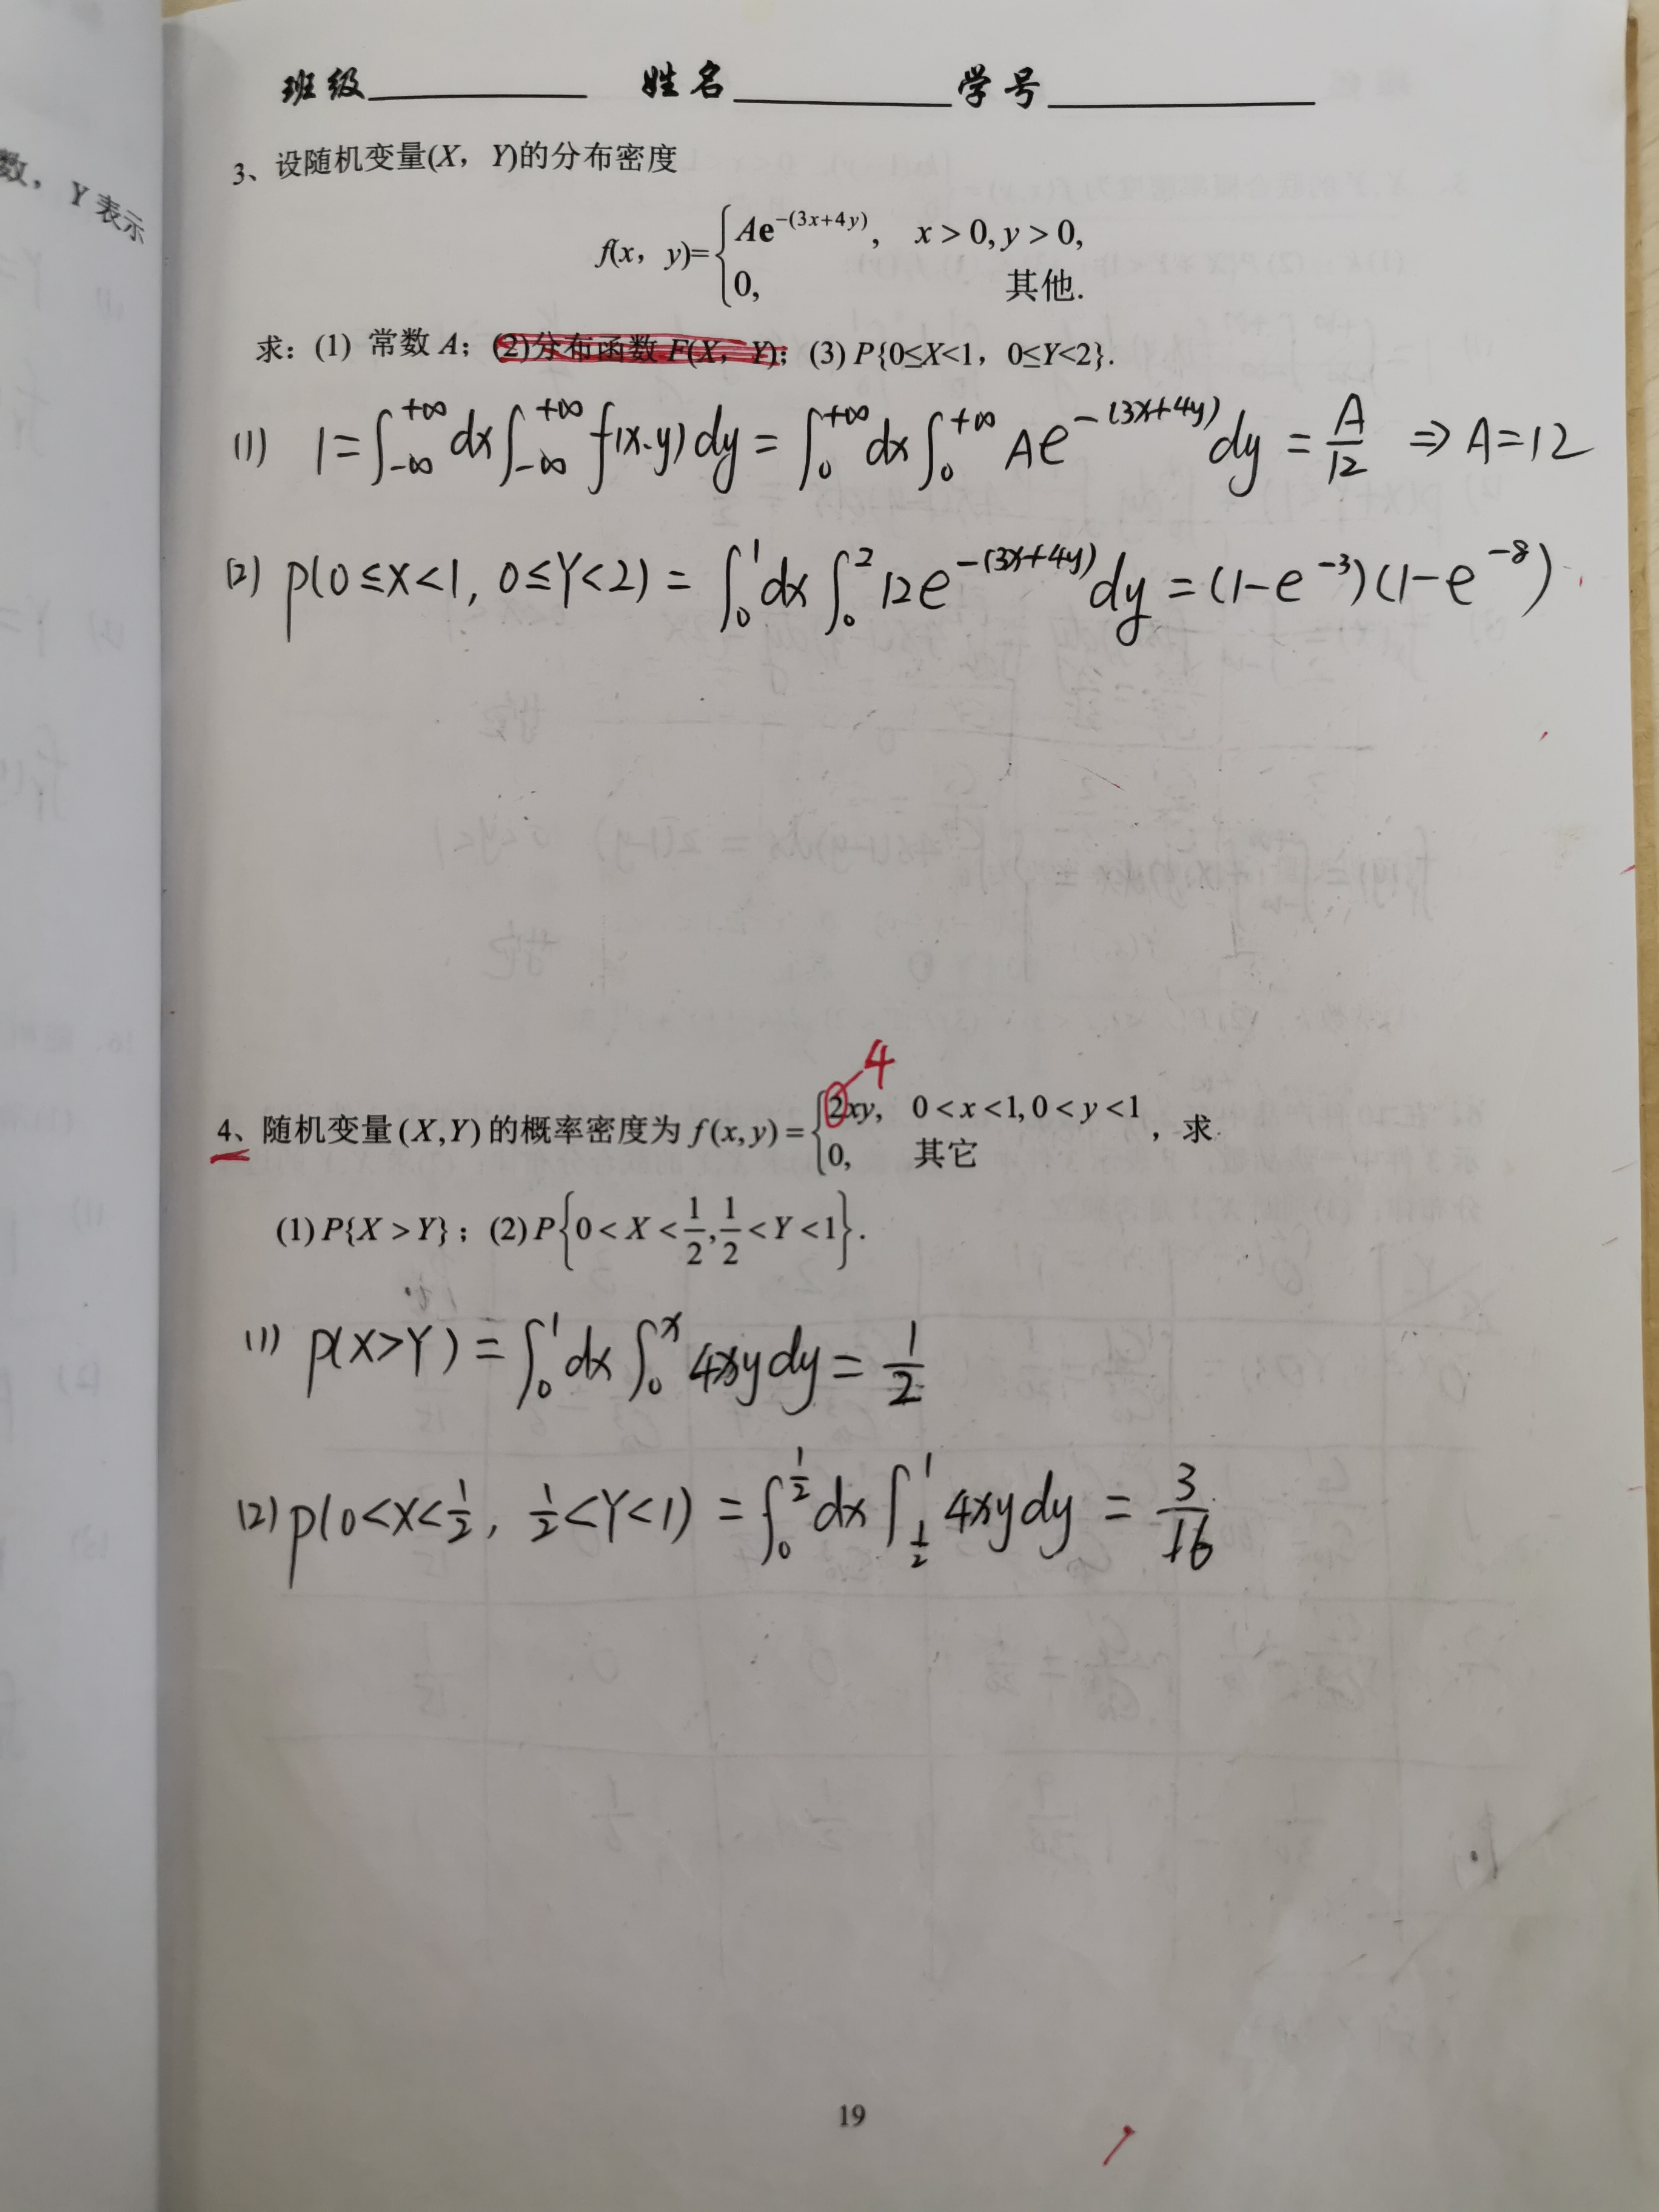 数，Y 表示
班级 姓名 学号
3、设随机变量(X，Y)的分布密度
f(x，y)={Ae^{-(3x+4y)}, x>0,y>0,
0, 其他.
求：(1) 常数 A；(2)分布函数 F(X，Y)；(3) P{0≤X<1，0≤Y<2}.
(1) 1=∫_{-∞}^{+∞}dx∫_{-∞}^{+∞}f(x.y)dy=∫_0^{+∞}dx∫_0^{+∞}Ae^{-(3x+4y)}dy=A/12 ⇒A=12
(2) p(0≤X<1, 0≤Y<2)=∫_0^1dx∫_0^2 12e^{-(3x+4y)}dy=(1-e^{-3})(1-e^{-8})
4
4、随机变量(X,Y)的概率密度为 f(x,y)={2xy, 0<x<1,0<y<1，求.
0, 其它
(1)P{X>Y}；(2)P{0<X<1/2,1/2<Y<1}.
(1) p(X>Y)=∫_0^1dx∫_0^x 4xydy=1/2
(2) p(0<X<1/2, 1/2<Y<1)=∫_0^{1/2}dx∫_{1/2}^1 4xydy=3/16
19